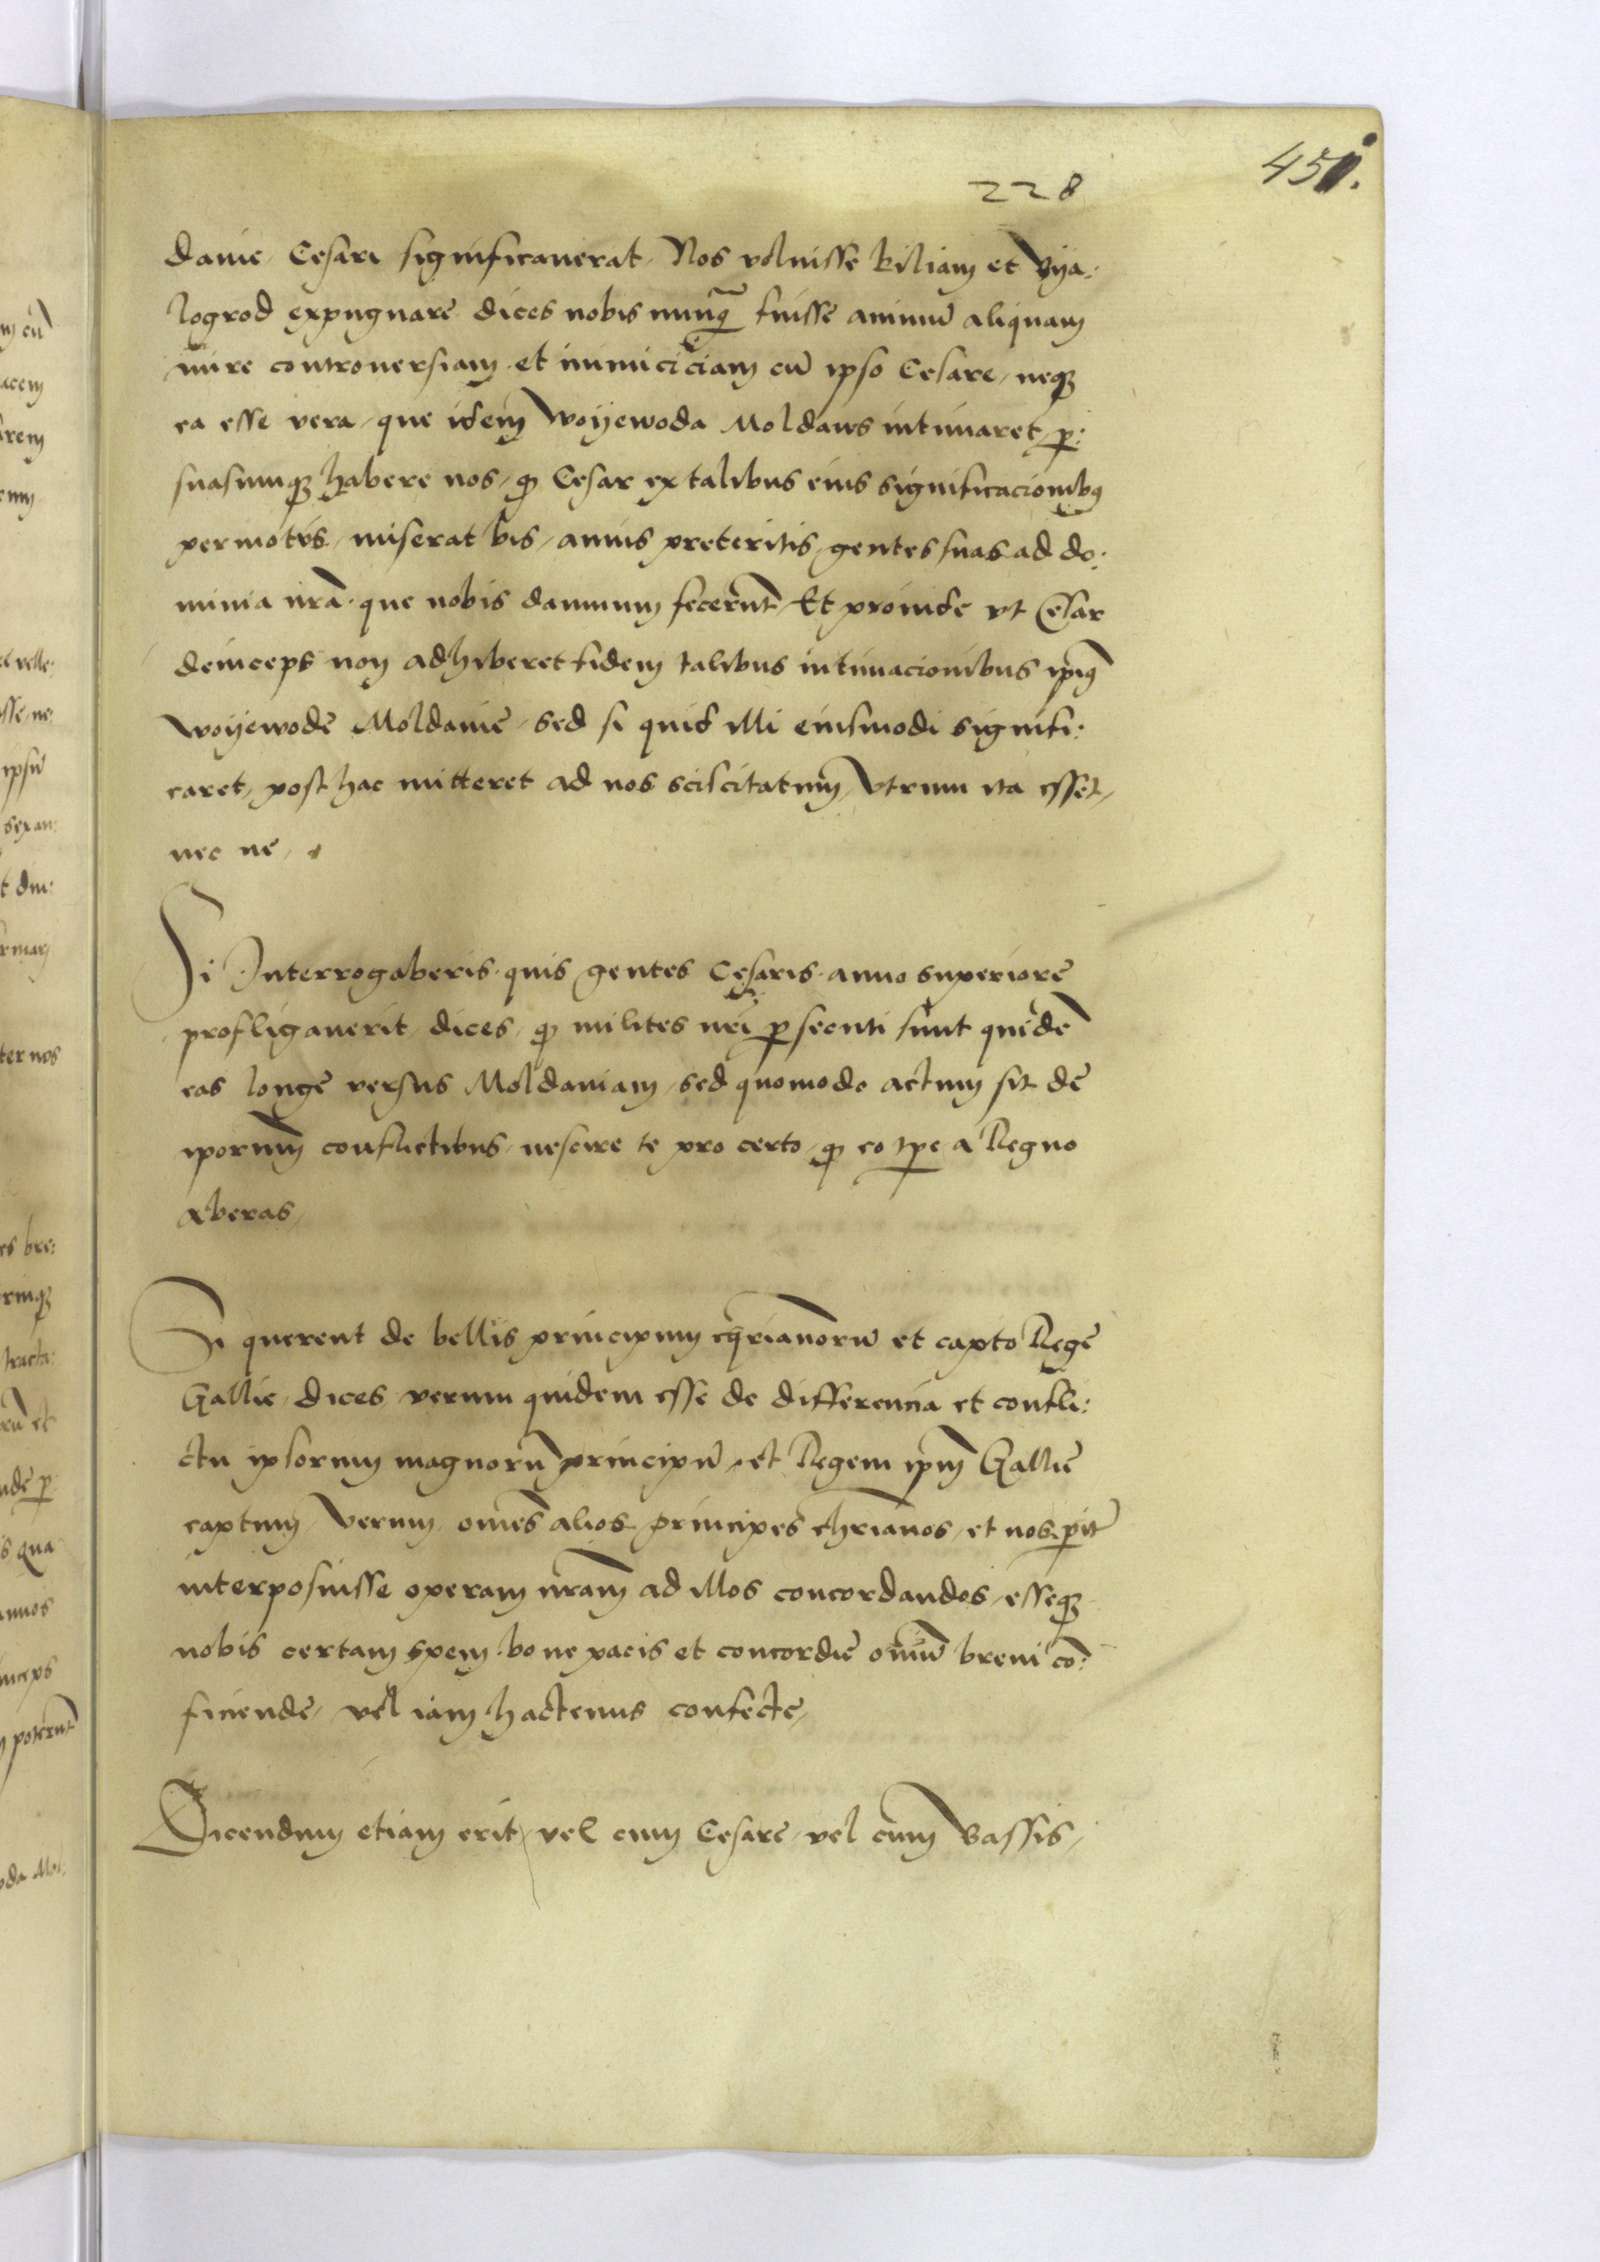 451.
228
davie Cesari significauerat. Nos voluisse kiliam et Bija:
logrod expugnare dices nobis nunq̄ fuisse animū aliquam
inire controuersiam et inimiciciam cū ipso Cesare, neqꝫ
ea esse vera, que idem woyewoda Moldauus intimaret, ꝑ:
suasumqꝫ habere nos, ꝙ Cesar ex talibus eius significacionibꝰ
permotus, miserat bis, annis preteritis, gentes suas ad do:
minia nrā. que nobis damnum fecerūt. Et proinde vt Cesar
deinceps non adhiberet fidem talibus intimacionibus ipiꝰ
woyewode Moldauie, sed si quid illi eiusmodi signifi:
caret, post hac mitteret ad nos sciscitatum, vtrum ita esset,
nec ne,
Si Interrogaberis. quis gentes Cesaris. anno superiore
profligauerit dices, ꝙ milites nri ꝑsecuti sunt quidē
eas longe versus Moldauiam, sed quomodo actum sit de
iporum conflictibus, nescire te pro certo, ꝙ eo tꝑe a Regno
aberas,
Si querent de bellis principum chrianorū et capto Rege
Gallie, dices verum quidem esse de differencia et confli:
ctu ipsorum magnorū principū, et Regem ipm̄ Gallie
captum, Verum om̄es alios principes chrianos, et nos ꝑit̄
interposuisse operam nram̄ ad illos concordandos, esseqꝫ
nobis certam spem. bone pacis et concordie om̄iū breui cō:
ficiende, vel iam hactenus confecte,
Dicendum etiam erit, vel cum Cesare, vel cum Bassis,